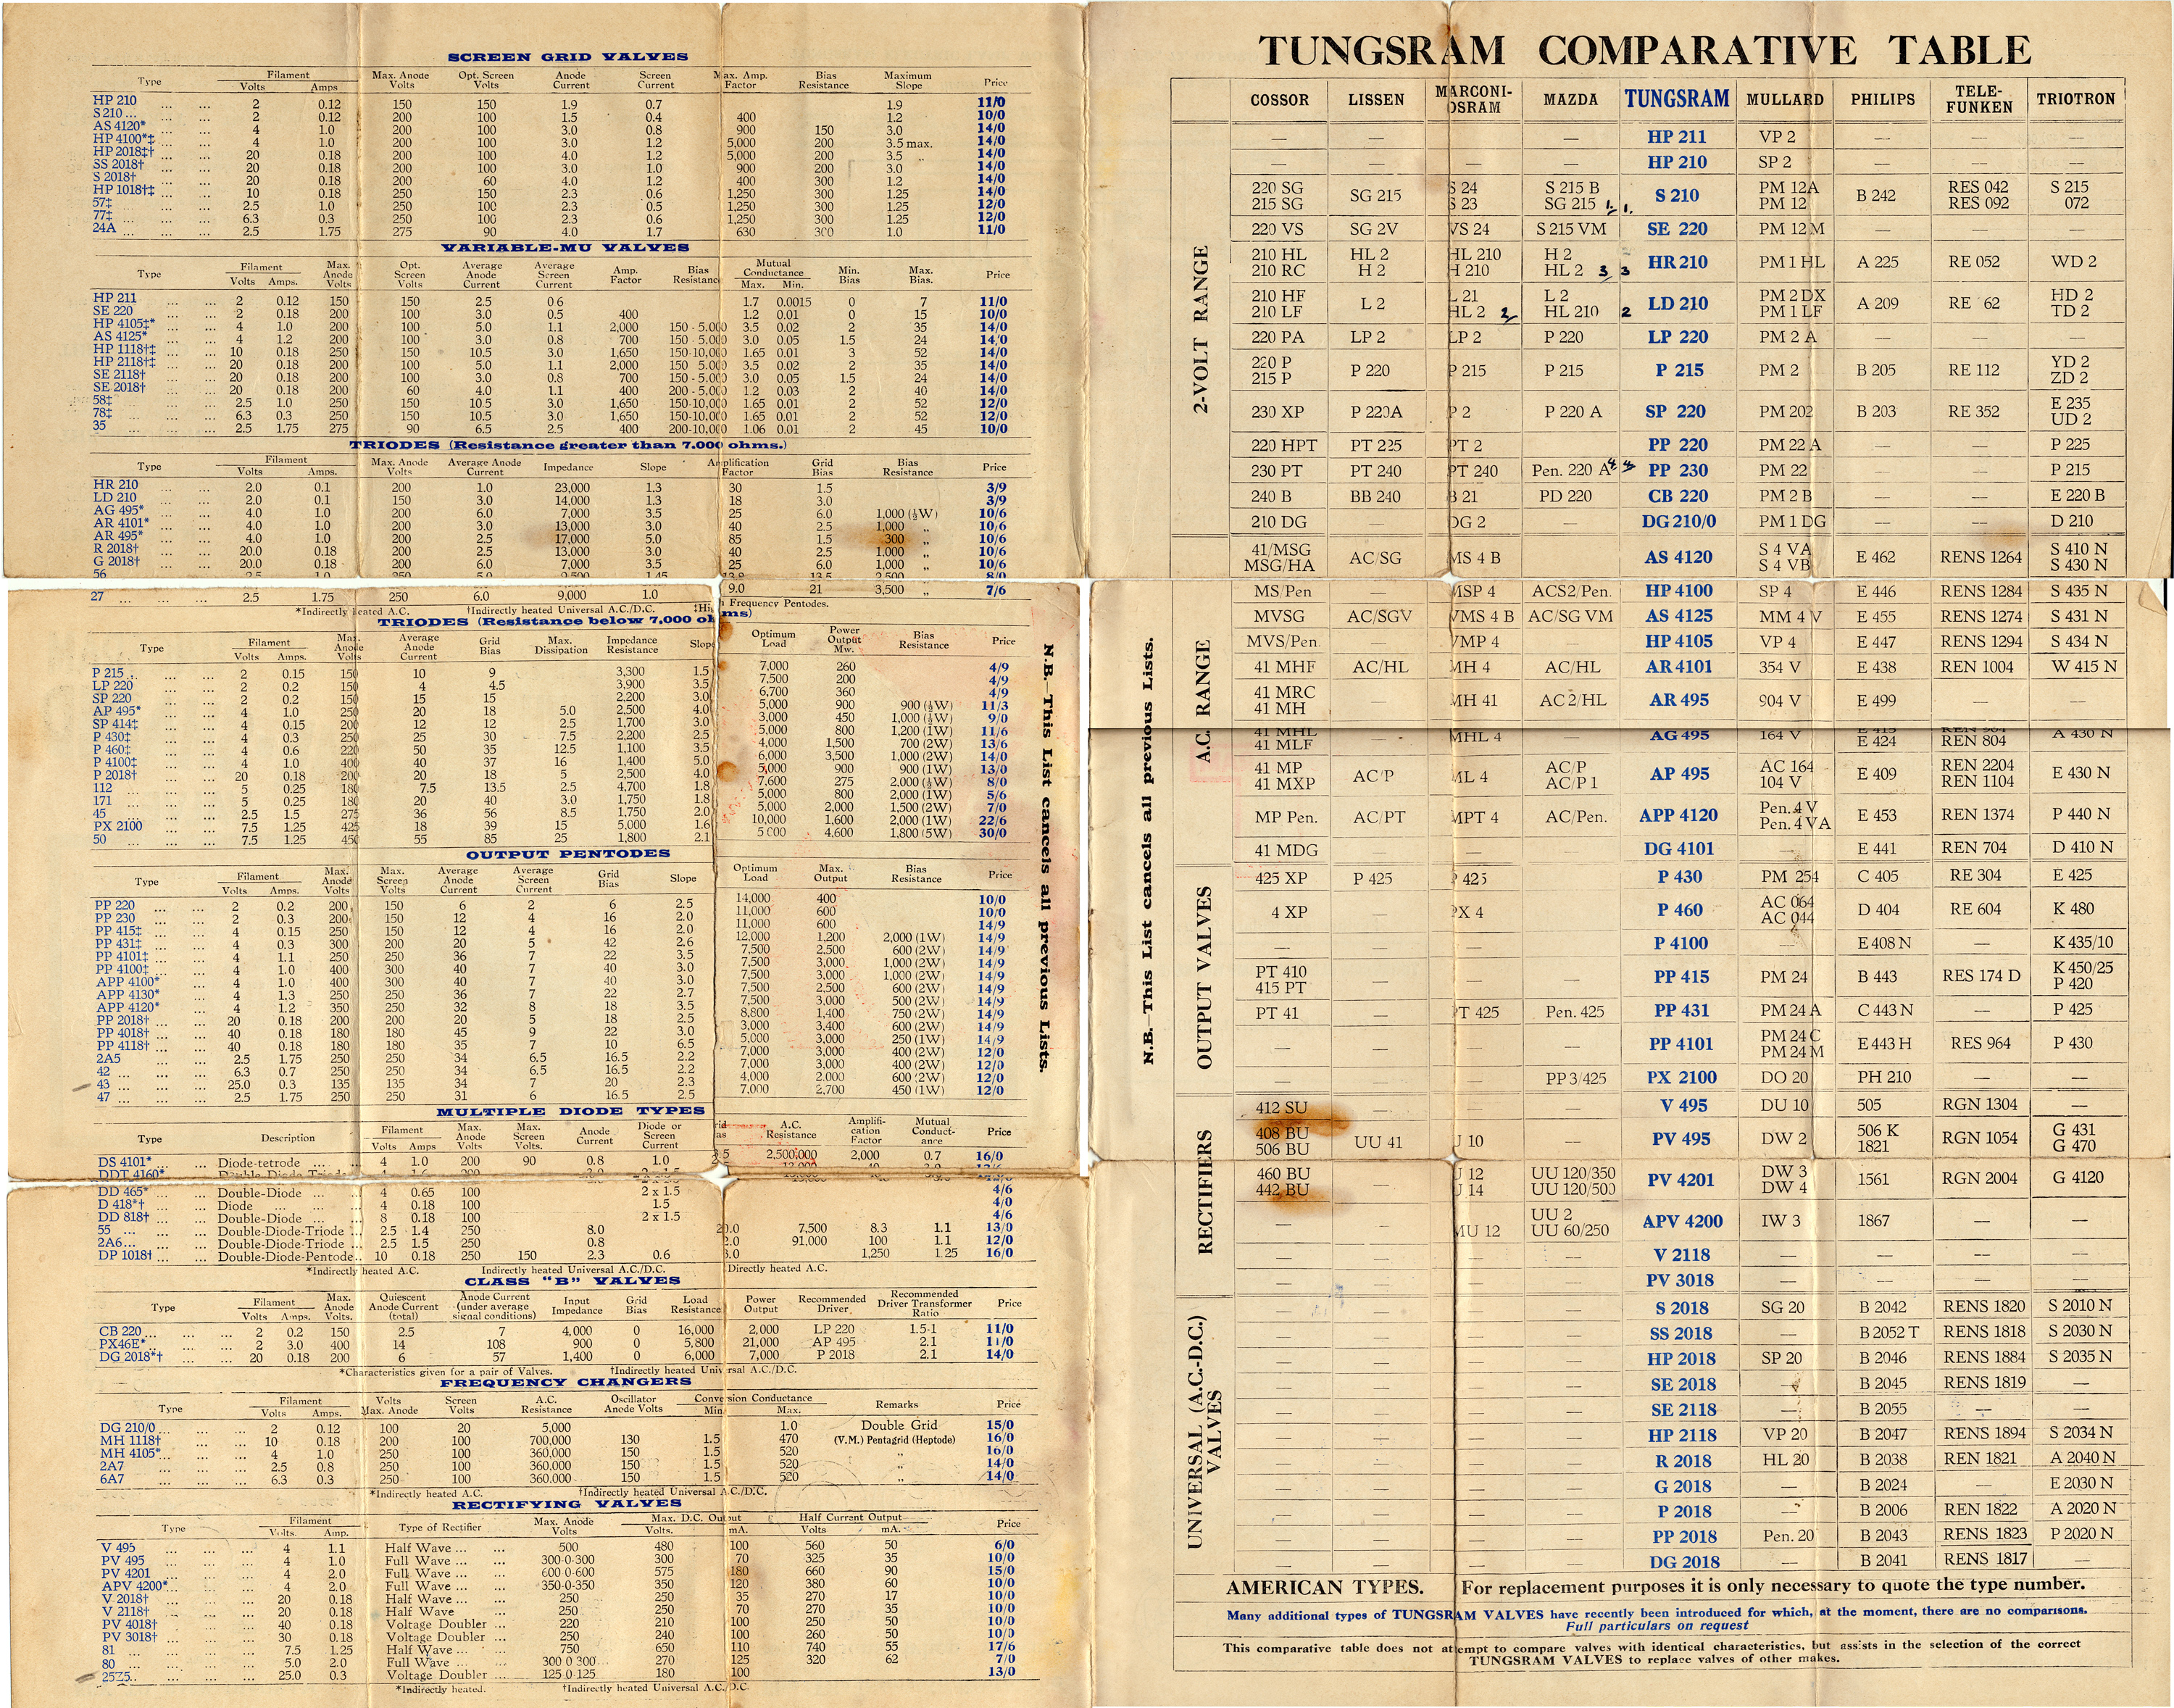 SCREEN GRID VALVES
Type Filament Volts Amps Max. Anode Volts Opt. Screen Volts Anode Current Screen Current Max. Amp. Factor Bias Resistance Maximum Slope Price
HP 210 ... ... 2 0.12 150 150 1.9 0.7 1.9 11/0
S 210 ... ... 2 0.12 200 100 1.5 0.4 400 1.2 10/0
AS 4120* ... ... 4 1.0 200 100 3.0 0.8 900 150 3.0 14/0
HP 4100*‡ ... ... 4 1.0 200 100 3.0 1.2 5,000 200 3.5 max. 14/0
HP 2018‡† ... ... 20 0.18 200 100 4.0 1.2 5,000 200 3.5 „ 14/0
SS 2018† ... ... 20 0.18 200 100 3.0 1.0 900 200 3.0 14/0
S 2018† ... ... 20 0.18 200 60 4.0 1.2 400 300 1.2 14/0
HP 1018†‡ ... ... 10 0.18 250 150 2.3 0.6 1,250 300 1.25 14/0
57‡ ... ... 2.5 1.0 250 100 2.3 0.5 1,250 300 1.25 12/0
77‡ ... ... 6.3 0.3 250 100 2.3 0.6 1,250 300 1.25 12/0
24A ... ... 2.5 1.75 275 90 4.0 1.7 630 300 1.0 11/0
VARIABLE-MU VALVES
Type Filament Volts Amps. Max. Anode Volts Opt. Screen Volts Average Anode Current Average Screen Current Amp. Factor Bias Resistance Mutual Conductance Max. Min. Min. Bias Max. Bias. Price
HP 211 ... ... 2 0.12 150 150 2.5 0 6 1.7 0.0015 0 7 11/0
SE 220 ... ... 2 0.18 200 100 3.0 0.5 400 1.2 0.01 0 15 10/0
HP 4105‡* ... ... 4 1.0 200 100 5.0 1.1 2,000 150 - 5.000 3.5 0.02 2 35 14/0
AS 4125* ... ... 4 1.2 200 100 3.0 0.8 700 150 - 5.000 3.0 0.05 1.5 24 14/0
HP 1118†‡ ... ... 10 0.18 250 150 10.5 3.0 1,650 150-10,000 1.65 0.01 3 52 14/0
HP 2118†‡ ... ... 20 0.18 200 100 5.0 1.1 2,000 150 - 5.000 3.5 0.02 2 35 14/0
SE 2118† ... ... 20 0.18 200 100 3.0 0.8 700 150 - 5.000 3.0 0.05 1.5 24 14/0
SE 2018† ... ... 20 0.18 200 60 4.0 1.1 400 200 - 5.000 1.2 0.03 2 40 14/0
58‡ ... ... 2.5 1.0 250 150 10.5 3.0 1,650 150-10,000 1.65 0.01 2 52 12/0
78‡ ... ... 6.3 0.3 250 150 10.5 3.0 1,650 150-10,000 1.65 0.01 2 52 12/0
35 ... ... 2.5 1.75 275 90 6.5 2.5 400 200-10,000 1.06 0.01 2 45 10/0
TRIODES (Resistance greater than 7.000 ohms.)
Type Filament Volts Amps. Max. Anode Volts Average Anode Current Impedance Slope Amplification Factor Grid Bias Bias Resistance Price
HR 210 ... ... 2.0 0.1 200 1.0 23,000 1.3 30 1.5 3/9
LD 210 ... ... 2.0 0.1 150 3.0 14,000 1.3 18 3.0 3/9
AG 495* ... ... 4.0 1.0 200 6.0 7,000 3.5 25 6.0 1,000 (½W) 10/6
AR 4101* ... ... 4.0 1.0 200 3.0 13,000 3.0 40 2.5 1,000 „ 10/6
AR 495* ... ... 4.0 1.0 200 2.5 17,000 5.0 85 1.5 300 „ 10/6
R 2018† ... ... 20.0 0.18 200 2.5 13,000 3.0 40 2.5 1,000 „ 10/6
G 2018† ... ... 20.0 0.18 200 6.0 7,000 3.5 25 6.0 1,000 „ 10/6
56 2.5 1.0 250 5.0 9,500 1.45 13.8 13.5 2,500 8/0
27 ... ... ... 2.5 1.75 250 6.0 9,000 1.0 9.0 21 3,500 „ 7/6
*Indirectly heated A.C. †Indirectly heated Universal A.C./D.C. ‡Hi h Frequency Pentodes.
TRIODES (Resistance below 7,000 ohms)
Type Filament Volts Amps. Max. Anode Volts Average Anode Current Grid Bias Max. Dissipation Impedance Resistance Slope Optimum Load Power Output Mw. Bias Resistance Price
P 215 ... ... 2 0.15 150 10 9 3,300 1.5 7,000 260 4/9
LP 220 ... ... 2 0.2 150 4 4.5 3,900 3.5 7.500 200 4/9
SP 220 ... ... 2 0.2 150 15 15 2,200 3.0 6,700 360 4/9
AP 495* ... ... 4 1.0 250 20 18 5.0 2,500 4.0 5,000 900 900 (½W) 11/3
SP 414‡ ... ... 4 0.15 200 12 12 2.5 1,700 3.0 3,000 450 1,000 (½W) 9/0
P 430‡ ... ... 4 0.3 250 25 30 7.5 2,200 2.5 5,000 800 1,200 (1W) 11/6
P 460‡ ... ... 4 0.6 220 50 35 12.5 1,100 3.5 4,000 1,500 700 (2W) 13/6
P 4100‡ ... ... 4 1.0 400 40 37 16 1,400 5.0 6,000 3,500 1,000 (2W) 14/0
P 2018† ... ... 20 0.18 200 20 18 5 2,500 4.0 5,000 900 900 (1W) 13/0
112 ... ... 5 0.25 180 7.5 13.5 2.5 4,700 1.8 7,600 275 2,000 (½W) 8/0
171 ... ... 5 0.25 180 20 40 3.0 1,750 1.8 5,000 800 2,000 (1W) 5/6
45 ... ... 2.5 1.5 275 36 56 8.5 1,750 2.0 5,000 2,000 1,500 (2W) 7/0
PX 2100 ... ... 7.5 1.25 425 18 39 15 5,000 1.6 10,000 1,600 2,000 (1W) 22/6
50 ... ... 7.5 1.25 450 55 85 25 1,800 2.1 5 000 4,600 1,800 (5W) 30/0
OUTPUT PENTODES
Type Filament Volts Amps. Max. Anode Volts Max. Screen Volts Average Anode Current Average Screen Current Grid Bias Slope Optimum Load Max. Output Bias Resistance Price
PP 220 ... ... 2 0.2 200 150 6 2 6 2.5 14,000 400 10/0
PP 230 ... ... 2 0.3 200 150 12 4 16 2.0 11,000 600 10/0
PP 415‡ ... ... 4 0.15 250 150 12 4 16 2.0 11,000 600 14/9
PP 431‡ ... ... 4 0.3 300 200 20 5 42 2.6 12,000 1,200 2,000 (1W) 14/9
PP 4101‡ ... ... 4 1.1 250 250 36 7 22 3.5 7,500 2,500 600 (2W) 14/9
PP 4100‡ ... ... 4 1.0 400 300 40 7 40 3.0 7,500 3,000 1,000 (2W) 14/9
APP 4100* ... ... 4 1.0 400 300 40 7 40 3.0 7,500 3,000 1,000 (2W) 14/9
APP 4130* ... ... 4 1.3 250 250 36 7 22 2.7 7,500 2,500 600 (2W) 14/9
APP 4120* ... ... 4 1.2 350 250 32 8 18 3.5 7,500 3,000 500 (2W) 14/9
PP 2018† ... ... 20 0.18 200 200 20 5 18 2.5 8,800 1,400 750 (2W) 14/9
PP 4018† ... ... 40 0.18 180 180 45 9 22 3.0 3,000 3,400 600 (2W) 14/9
PP 4118† ... ... 40 0.18 180 180 35 7 10 6.5 5,000 3,000 250 (1W) 14/9
2A5 ... ... 2.5 1.75 250 250 34 6.5 16.5 2.2 7,000 3,000 400 (2W) 12/0
42 ... ... 6.3 0.7 250 250 34 6.5 16.5 2.2 7,000 3,000 400 (2W) 12/0
43 ... ... 25.0 0.3 135 135 34 7 20 2.3 4,000 2.000 600 (2W) 12/0
47 ... ... 2.5 1.75 250 250 31 6 16.5 2.5 7,000 2,700 450 (1W) 12/0
MULTIPLE DIODE TYPES
Type Description Filament Volts Amps Max. Anode Volts Max. Screen Volts. Anode Current Diode or Screen Current rid as A.C. Resistance Amplification Factor Mutual Conductance Price
DS 4101* ... Diode-tetrode ... ... 4 1.0 200 90 0.8 1.0 3.5 2,500,000 2,000 0.7 16/0
DDT 4160*
DD 465* ... ... Double-Diode ... ... 4 0.65 100 2 x 1.5 4/6
D 418*† ... ... Diode ... ... 4 0.18 100 1.5 4/0
DD 818† ... Double-Diode ... ... 8 0.18 100 2 x 1.5 4/6
55 ... ... Double-Diode-Triode ... 2.5 1.4 250 8.0 20.0 7,500 8.3 1.1 13/0
2A6 ... ... Double-Diode-Triode ... 2.5 1.5 250 0.8 2.0 91,000 100 1.1 12/0
DP 1018† ... Double-Diode-Pentode.. 10 0.18 250 150 2.3 0.6 3.0 1,250 1.25 16/0
*Indirectly heated A.C. Indirectly heated Universal A.C./D.C. Directly heated A.C.
CLASS “B” VALVES
Type Filament Volts Amps. Max. Anode Volts. Quiescent Anode Current (total) Anode Current (under average signal conditions) Input Impedance Grid Bias Load Resistance Power Output Recommended Driver Recommended Driver Transformer Ratio Price
CB 220 ... ... 2 0.2 150 2.5 7 4,000 0 16,000 2,000 LP 220 1.5-1 11/0
PX46E* ... ... 2 3.0 400 14 108 900 0 5,800 21,000 AP 495 2.1 11/0
DG 2018*† ... ... 20 0.18 200 6 57 1,400 0 6,000 7,000 P 2018 2.1 14/0
*Characteristics given for a pair of Valves. †Indirectly heated Universal A.C./D.C.
FREQUENCY CHANGERS
Type Filament Volts Amps. Volts Max. Anode Screen Volts A.C. Resistance Oscillator Anode Volts Conversion Conductance Min Max. Remarks Price
DG 210/0 ... ... 2 0.12 100 20 5,000 1.0 Double Grid 15/0
MH 1118† ... ... 10 0.18 200 100 700,000 130 1.5 470 (V.M.) Pentagrid (Heptode) 16/0
MH 4105* ... ... 4 1.0 250 100 360,000 150 1.5 520 „ 16/0
2A7 ... ... 2.5 0.8 250 100 360,000 150 1.5 520 „ 14/0
6A7 ... ... 6.3 0.3 250 100 360.000 150 1.5 520 „ 14/0
*Indirectly heated A.C. †Indirectly heated Universal A.C./D.C.
RECTIFYING VALVES
Type Filament Volts. Amp. Type of Rectifier Max. Anode Volts Max. D.C. Output Volts. mA. Half Current Output Volts mA. Price
V 495 ... ... 4 1.1 Half Wave ... ... 500 480 100 560 50 6/0
PV 495 ... ... 4 1.0 Full Wave ... ... 300-0-300 300 70 325 35 10/0
PV 4201 ... ... 4 2.0 Full Wave ... ... 600-0-600 575 180 660 90 15/0
APV 4200* ... ... 4 2.0 Full Wave ... ... 350-0-350 350 120 380 60 10/0
V 2018† ... ... 20 0.18 Half Wave ... ... 250 250 35 270 17 10/0
V 2118† ... ... 20 0.18 Half Wave ... 250 250 70 270 35 10/0
PV 4018† ... ... 40 0.18 Voltage Doubler ... 220 210 100 250 50 10/0
PV 3018† ... ... 30 0.18 Voltage Doubler ... 250 240 100 260 50 10/0
81 ... ... 7.5 1.25 Half Wave ... ... 750 650 110 740 55 17/6
80 ... ... 5.0 2.0 Full Wave ... ... 300 0 300 270 125 320 62 7/0
25Z5 ... ... 25.0 0.3 Voltage Doubler ... 125 0-125 180 100 13/0
*Indirectly heated. †Indirectly heated Universal A.C./D.C.
N.B.—This List cancels all previous Lists.
N.B.—This List cancels all previous Lists.
TUNGSRAM COMPARATIVE TABLE
COSSOR LISSEN MARCONI-OSRAM MAZDA TUNGSRAM MULLARD PHILIPS TELE-FUNKEN TRIOTRON
2-VOLT RANGE
— — — — HP 211 VP 2 — — —
— — — — HP 210 SP 2 — — —
220 SG SG 215 S 24 S 215 B S 210 PM 12A B 242 RES 042 S 215
215 SG S 23 SG 215 1. 1. PM 12 RES 092 072
220 VS SG 2V VS 24 S 215 VM SE 220 PM 12 M — — —
210 HL HL 2 HL 210 H 2 HR 210 PM 1 HL A 225 RE 052 WD 2
210 RC H 2 H 210 HL 2 3 3
210 HF L 2 L 21 L 2 LD 210 PM 2 DX A 209 RE 62 HD 2
210 LF HL 2 2 HL 210 2 PM 1 LF TD 2
220 PA LP 2 LP 2 P 220 LP 220 PM 2 A — — —
220 P P 220 P 215 P 215 P 215 PM 2 B 205 RE 112 YD 2
215 P ZD 2
230 XP P 220A P 2 P 220 A SP 220 PM 202 B 203 RE 352 E 235
UD 2
220 HPT PT 225 PT 2 — PP 220 PM 22 A — — P 225
230 PT PT 240 PT 240 Pen. 220 A 4 4 PP 230 PM 22 — — P 215
240 B BB 240 B 21 PD 220 CB 220 PM 2 B — — E 220 B
210 DG — DG 2 — DG 210/0 PM 1 DG — — D 210
A.C. RANGE
41/MSG AC/SG MS 4 B — AS 4120 S 4 VA E 462 RENS 1264 S 410 N
MSG/HA S 4 VB S 430 N
MS/Pen — MSP 4 ACS2/Pen. HP 4100 SP 4 E 446 RENS 1284 S 435 N
MVSG AC/SGV VMS 4 B AC/SG VM AS 4125 MM 4 V E 455 RENS 1274 S 431 N
MVS/Pen. — VMP 4 — HP 4105 VP 4 E 447 RENS 1294 S 434 N
41 MHF AC/HL MH 4 AC/HL AR 4101 354 V E 438 REN 1004 W 415 N
41 MRC — MH 41 AC 2/HL AR 495 904 V E 499 — —
41 MH
41 MHL MHL 4 AG 495 164 V E 424 REN 804 A 430 N
41 MLF
41 MP AC/P ML 4 AC/P AP 495 AC 164 E 409 REN 2204 E 430 N
41 MXP AC/P 1 104 V REN 1104
MP Pen. AC/PT MPT 4 AC/Pen. APP 4120 Pen. 4 V E 453 REN 1374 P 440 N
Pen. 4 VA
41 MDG — — — DG 4101 — E 441 REN 704 D 410 N
OUTPUT VALVES
425 XP P 425 P 425 — P 430 PM 254 C 405 RE 304 E 425
4 XP — PX 4 — P 460 AC 064 D 404 RE 604 K 480
AC 044
— — — — P 4100 — E 408 N — K 435/10
PT 410 — — — PP 415 PM 24 B 443 RES 174 D K 450/25
415 PT P 420
PT 41 — PT 425 Pen. 425 PP 431 PM 24 A C 443 N — P 425
— — — — PP 4101 PM 24 C E 443 H RES 964 P 430
PM 24 M
— — — PP 3/425 PX 2100 DO 20 PH 210 — —
RECTIFIERS
412 SU — — — V 495 DU 10 505 RGN 1304 —
408 BU UU 41 U 10 — PV 495 DW 2 506 K RGN 1054 G 431
506 BU 1821 G 470
460 BU — U 12 UU 120/350 PV 4201 DW 3 1561 RGN 2004 G 4120
442 BU U 14 UU 120/500 DW 4
— — MU 12 UU 2 APV 4200 IW 3 1867 — —
UU 60/250
— — — — V 2118 — — — —
— — — — PV 3018 — — — —
UNIVERSAL (A.C.-D.C.) VALVES
— — — — S 2018 SG 20 B 2042 RENS 1820 S 2010 N
— — — — SS 2018 — B 2052 T RENS 1818 S 2030 N
— — — — HP 2018 SP 20 B 2046 RENS 1884 S 2035 N
— — — — SE 2018 — B 2045 RENS 1819 —
— — — — SE 2118 — B 2055 — —
— — — — HP 2118 VP 20 B 2047 RENS 1894 S 2034 N
— — — — R 2018 HL 20 B 2038 REN 1821 A 2040 N
— — — — G 2018 — B 2024 — E 2030 N
— — — — P 2018 — B 2006 REN 1822 A 2020 N
— — — — PP 2018 Pen. 20 B 2043 RENS 1823 P 2020 N
— — — — DG 2018 — B 2041 RENS 1817 —
AMERICAN TYPES. For replacement purposes it is only necessary to quote the type number.
Many additional types of TUNGSRAM VALVES have recently been introduced for which, at the moment, there are no comparisons.
Full particulars on request
This comparative table does not attempt to compare valves with identical characteristics, but assists in the selection of the correct
TUNGSRAM VALVES to replace valves of other makes.